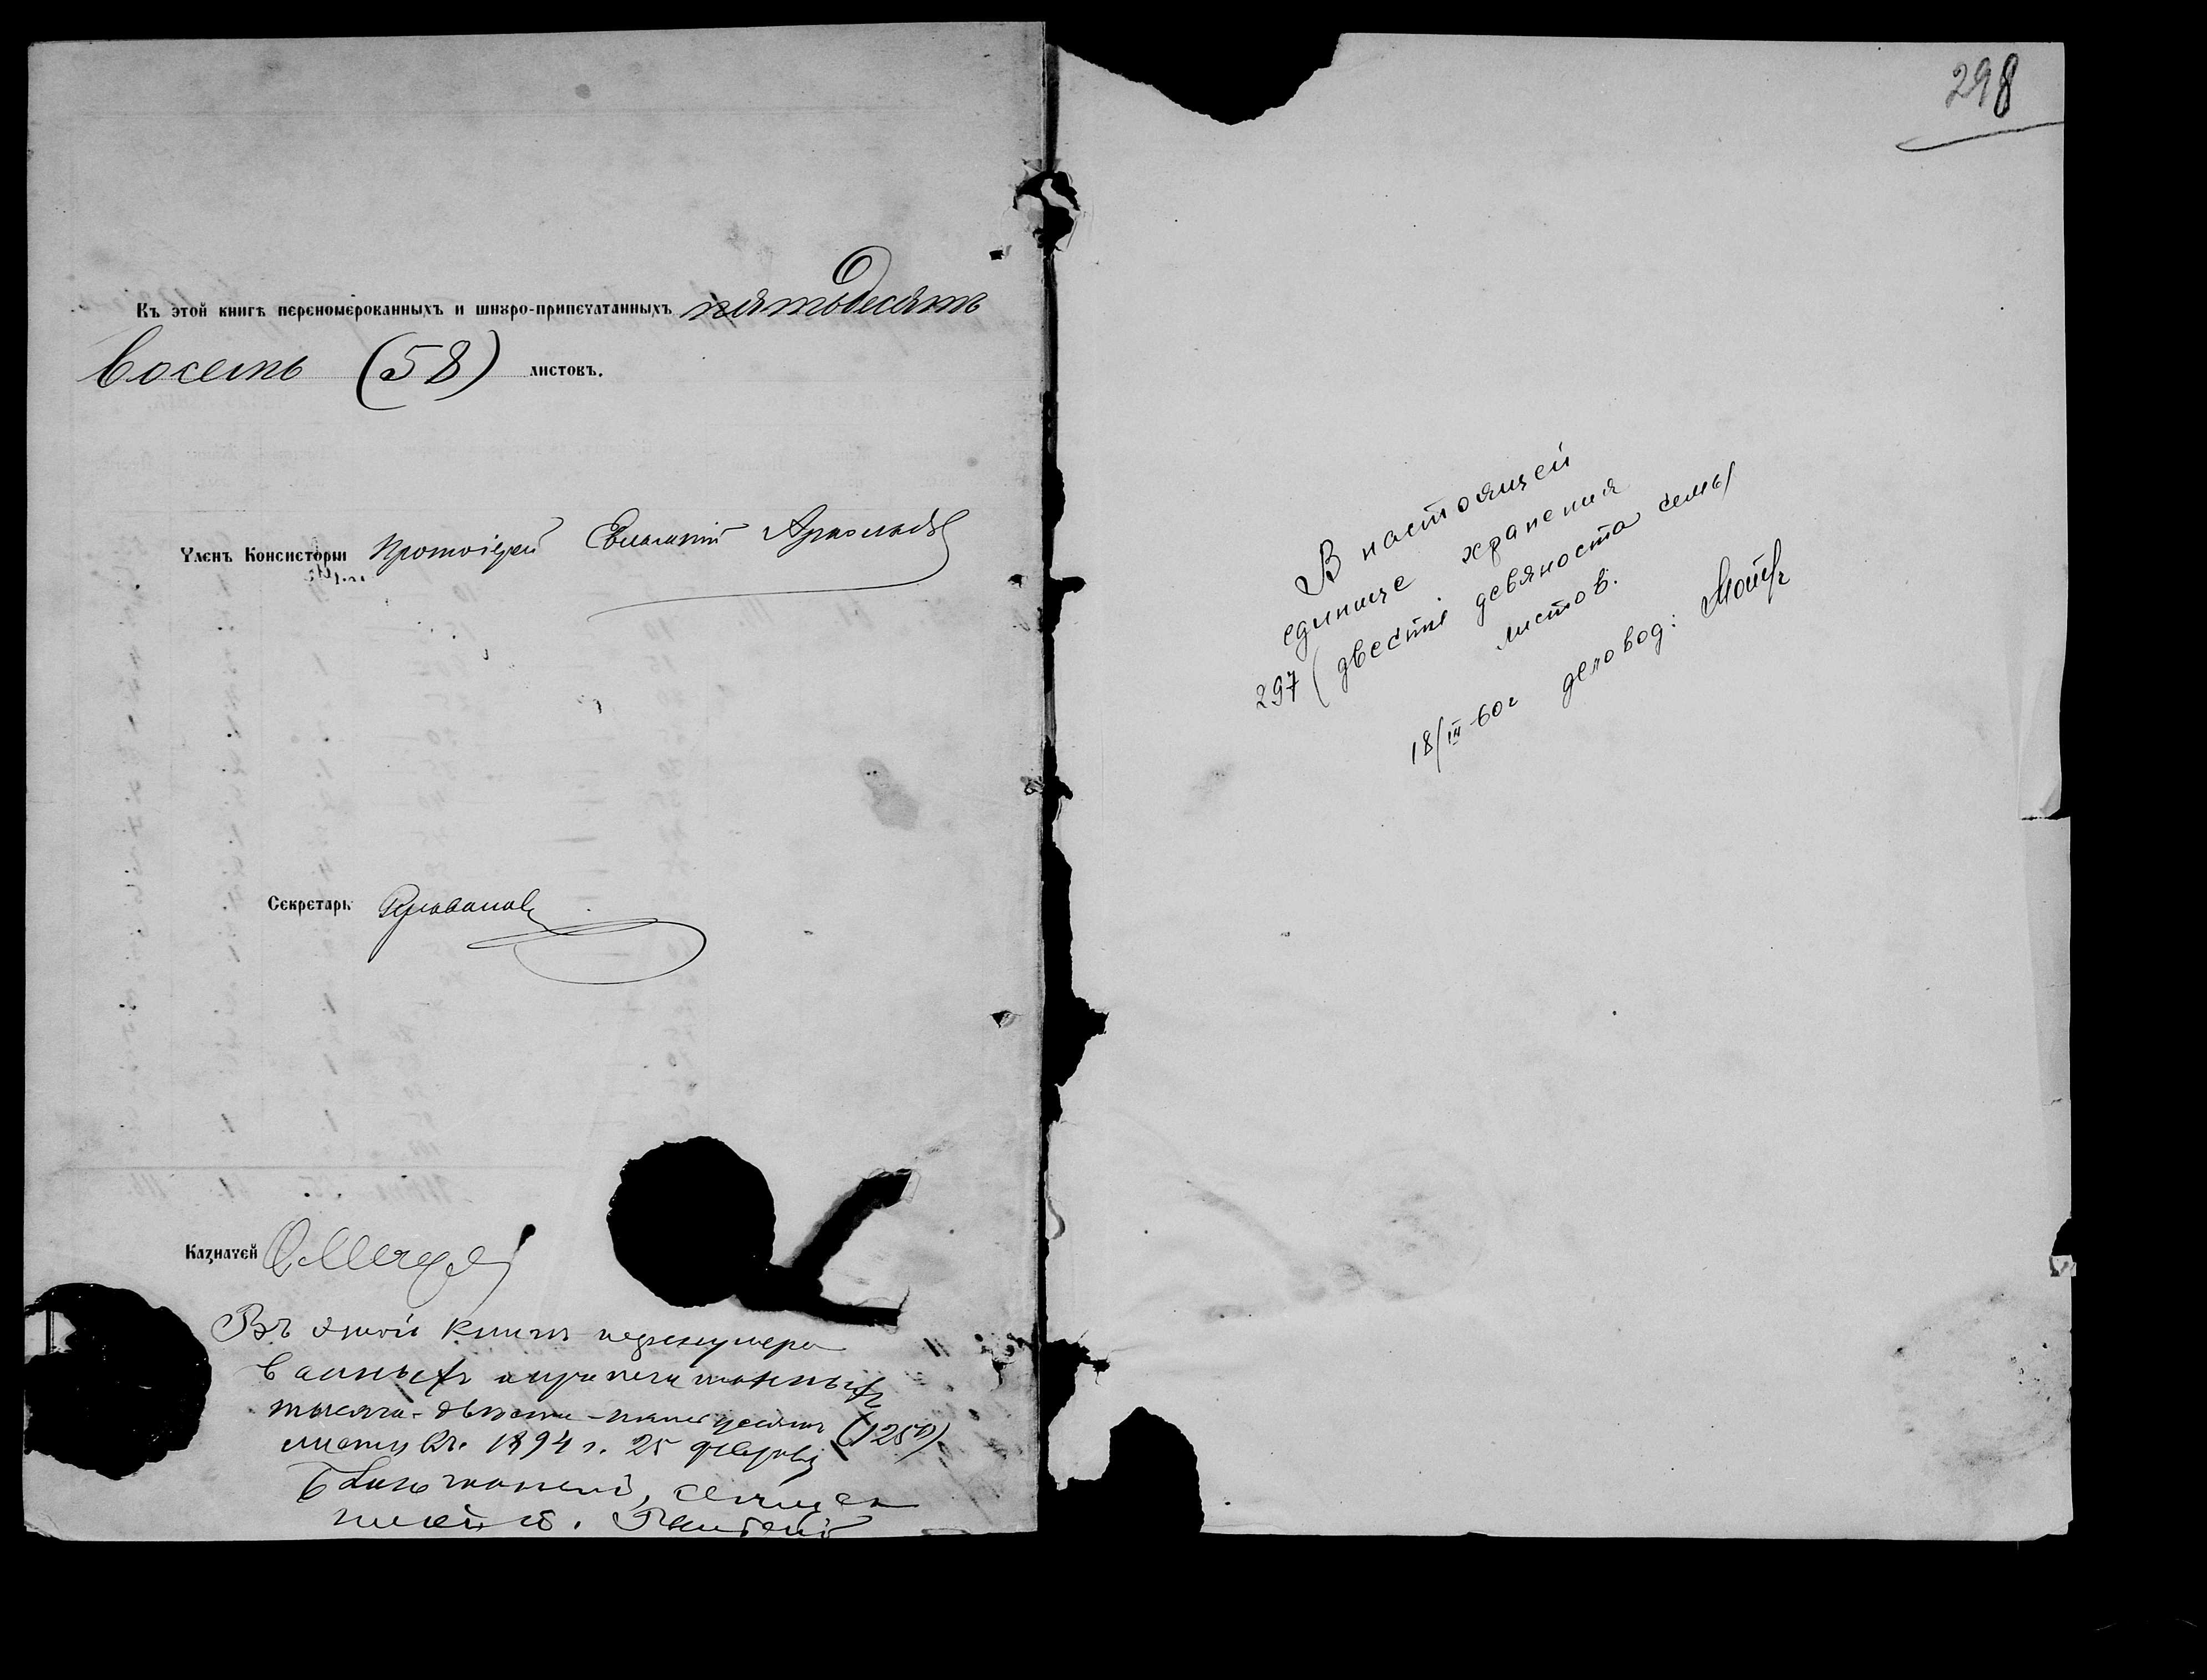 Въ этой книгѣ перенoмерованныхъ и шнуро-припечатанныхъ пятьдесятъ
восемь (58) листовъ.
Членъ Консисторіи Протоіерей Евлампій
Секретарь
Казначей
Въ этой книгѣ перенумеро
ванныхъ и припечатанныхъ
тысяча-двѣсти-пятьдесятъ (1250)
листовъ. 1894 г. 25 февраля
298
В настоящей
единице хранения
297 (двести девяносто семь)
листов.
18/III-60г деловод: